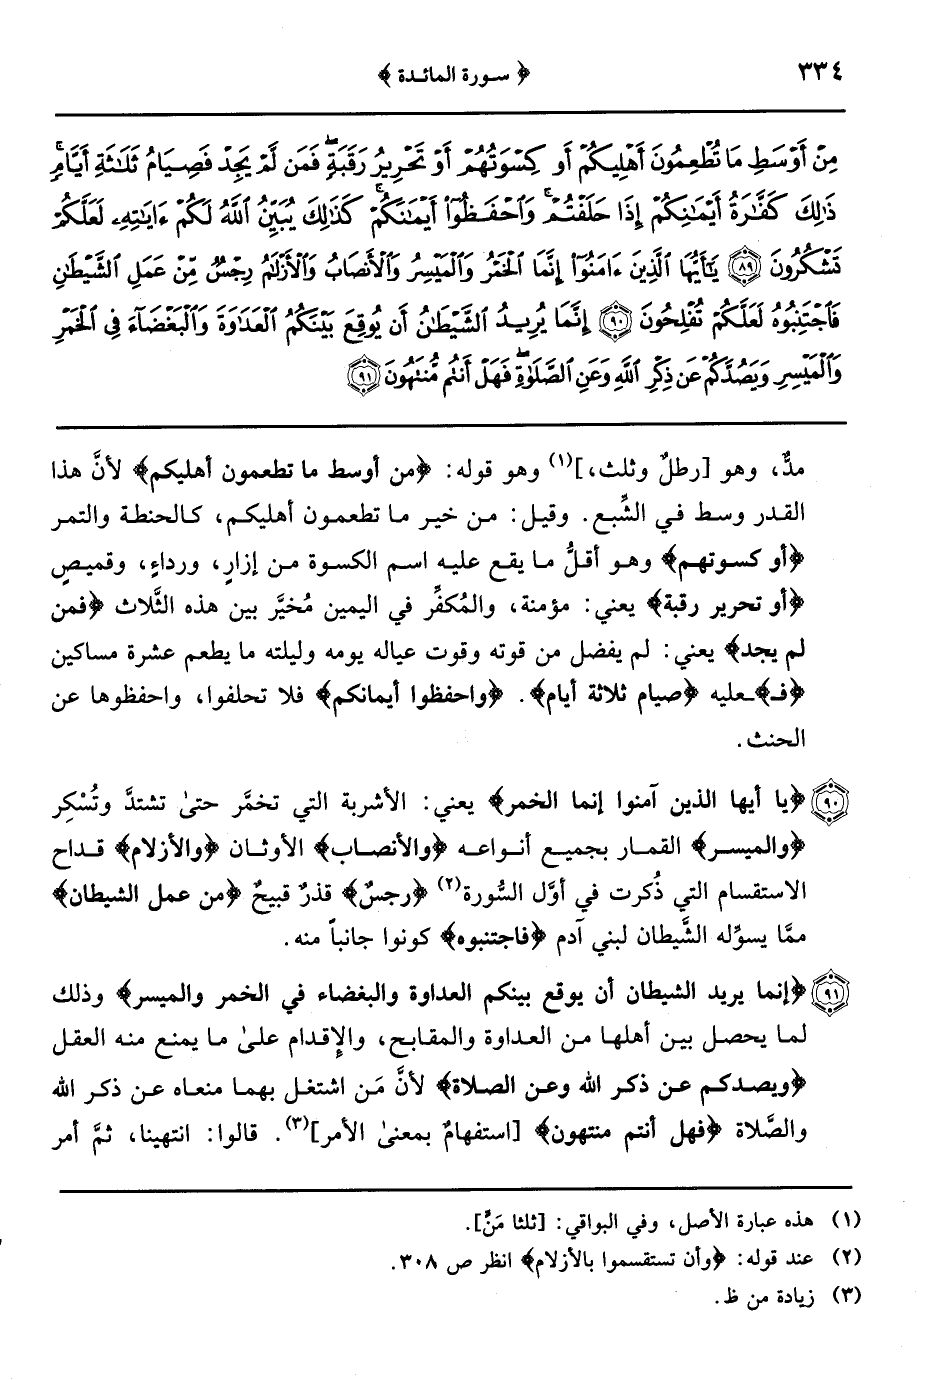 ٣٣٤
﴿ سورة المائدة ﴾
مِنْ أَوْسَطِ مَا تُطْعِمُونَ أَهْلِيكُمْ أَوْ كِسْوَتُهُمْ أَوْ تَحْرِيرُ رَقَبَةٍ ۖ فَمَن لَّمْ يَجِدْ فَصِيَامُ ثَلَٰثَةِ أَيَّامٍ ۚ
ذَٰلِكَ كَفَّٰرَةُ أَيْمَٰنِكُمْ إِذَا حَلَفْتُمْ ۚ وَٱحْفَظُوٓا۟ أَيْمَٰنَكُمْ ۚ كَذَٰلِكَ يُبَيِّنُ ٱللَّهُ لَكُمْ ءَايَٰتِهِۦ لَعَلَّكُمْ
تَشْكُرُونَ ﴿٨٩﴾ يَٰٓأَيُّهَا ٱلَّذِينَ ءَامَنُوٓا۟ إِنَّمَا ٱلْخَمْرُ وَٱلْمَيْسِرُ وَٱلْأَنصَابُ وَٱلْأَزْلَٰمُ رِجْسٌ مِّنْ عَمَلِ ٱلشَّيْطَٰنِ
فَٱجْتَنِبُوهُ لَعَلَّكُمْ تُفْلِحُونَ ﴿٩٠﴾ إِنَّمَا يُرِيدُ ٱلشَّيْطَٰنُ أَن يُوقِعَ بَيْنَكُمُ ٱلْعَدَٰوَةَ وَٱلْبَغْضَآءَ فِى ٱلْخَمْرِ
وَٱلْمَيْسِرِ وَيَصُدَّكُمْ عَن ذِكْرِ ٱللَّهِ وَعَنِ ٱلصَّلَوٰةِ ۖ فَهَلْ أَنتُم مُّنتَهُونَ ﴿٩١﴾
مدٌّ، وهو [رطلٌ وثلث،](١) وهو قوله: ﴿من أوسط ما تطعمون أهليكم﴾ لأنَّ هذا
القدر وسط في الشِّبع. وقيل: من خير ما تطعمون أهليكم، كالحنطة والتمر
﴿أو كسوتهم﴾ وهو أقلُّ ما يقع عليه اسم الكسوة من إزارٍ، ورداءٍ، وقميصٍ
﴿أو تحرير رقبة﴾ يعني: مؤمنة، والمُكفِّر في اليمين مُخيَّر بين هذه الثَّلاث ﴿فمن
لم يجد﴾ يعني: لم يفضل من قوته وقوت عياله يومه وليلته ما يطعم عشرة مساكين
﴿فـ﴾ـعليه ﴿صيام ثلاثة أيام﴾. ﴿واحفظوا أيمانكم﴾ فلا تحلفوا، واحفظوها عن
الحنث.
﴿٩٠﴾ ﴿يا أيها الذين آمنوا إنما الخمر﴾ يعني: الأشربة التي تخمَّر حتىٰ تشتدَّ وتُسْكِر
﴿والميسر﴾ القمار بجميع أنواعه ﴿والأنصاب﴾ الأوثان ﴿والأزلام﴾ قداح
الاستقسام التي ذُكرت في أوَّل السُّورة(٢) ﴿رجسٌ﴾ قذرٌ قبيحٌ ﴿من عمل الشيطان﴾
ممَّا يسوِّله الشَّيطان لبني آدم ﴿فاجتنبوه﴾ كونوا جانباً منه.
﴿٩١﴾ ﴿إنما يريد الشيطان أن يوقع بينكم العداوة والبغضاء في الخمر والميسر﴾ وذلك
لما يحصل بين أهلها من العداوة والمقابح، والإقدام علىٰ ما يمنع منه العقل
﴿ويصدكم عن ذكر الله وعن الصلاة﴾ لأنَّ مَن اشتغل بهما منعاه عن ذكر الله
والصَّلاة ﴿فهل أنتم منتهون﴾ [استفهامٌ بمعنىٰ الأمر](٣). قالوا: انتهينا، ثمَّ أمر
(١) هذه عبارة الأصل، وفي البواقي: [ثلثا مَنٍّ].
(٢) عند قوله: ﴿وأن تستقسموا بالأزلام﴾ انظر ص ٣٠٨.
(٣) زيادة من ظ.